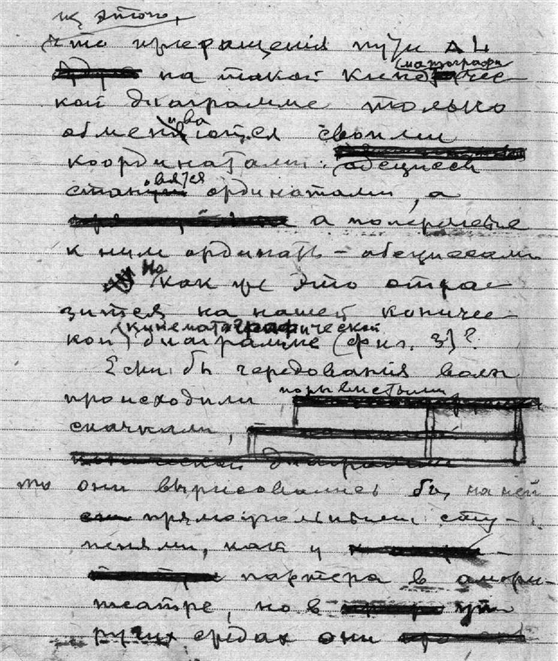 из этого,
что приращения пути ΔL
на такой кинематографиче-
ской диаграмме только
обмениваются своими
координатами: абсциссы
становятся ординатами, а
а поперечные
к ним ординаты — абсциссами
Но как же это отра-
зится на нашей кониче-
ской кинематографической
диаграмме (фиг. 3)?
Если бы чередования волн
происходили порывистыми
скачками,
то они вырисовались бы на ней
прямоугольными сту-
пенями, как у
партера в амфи-
театре, но в упру-
гих средах они